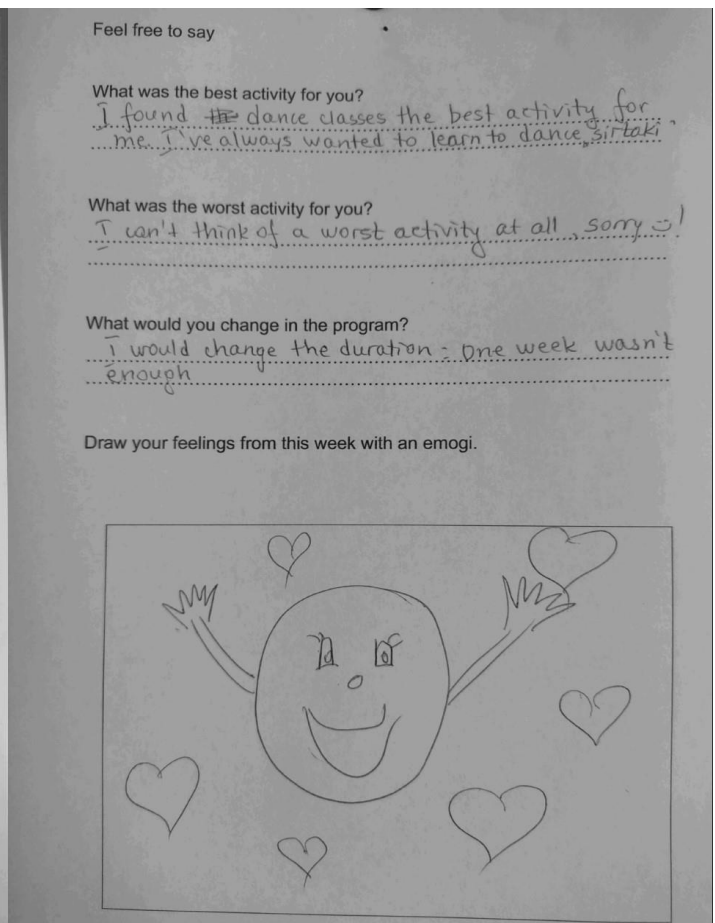 Feel free to say
What was the best activity for you?
I found the dance classes the best activity for
me. I've always wanted to learn to dance sirtaki.
What was the worst activity for you?
I can't think of a worst activity at all, sorry!
What would you change in the program?
I would change the duration - one week wasn't
enough
Draw your feelings from this week with an emogi.